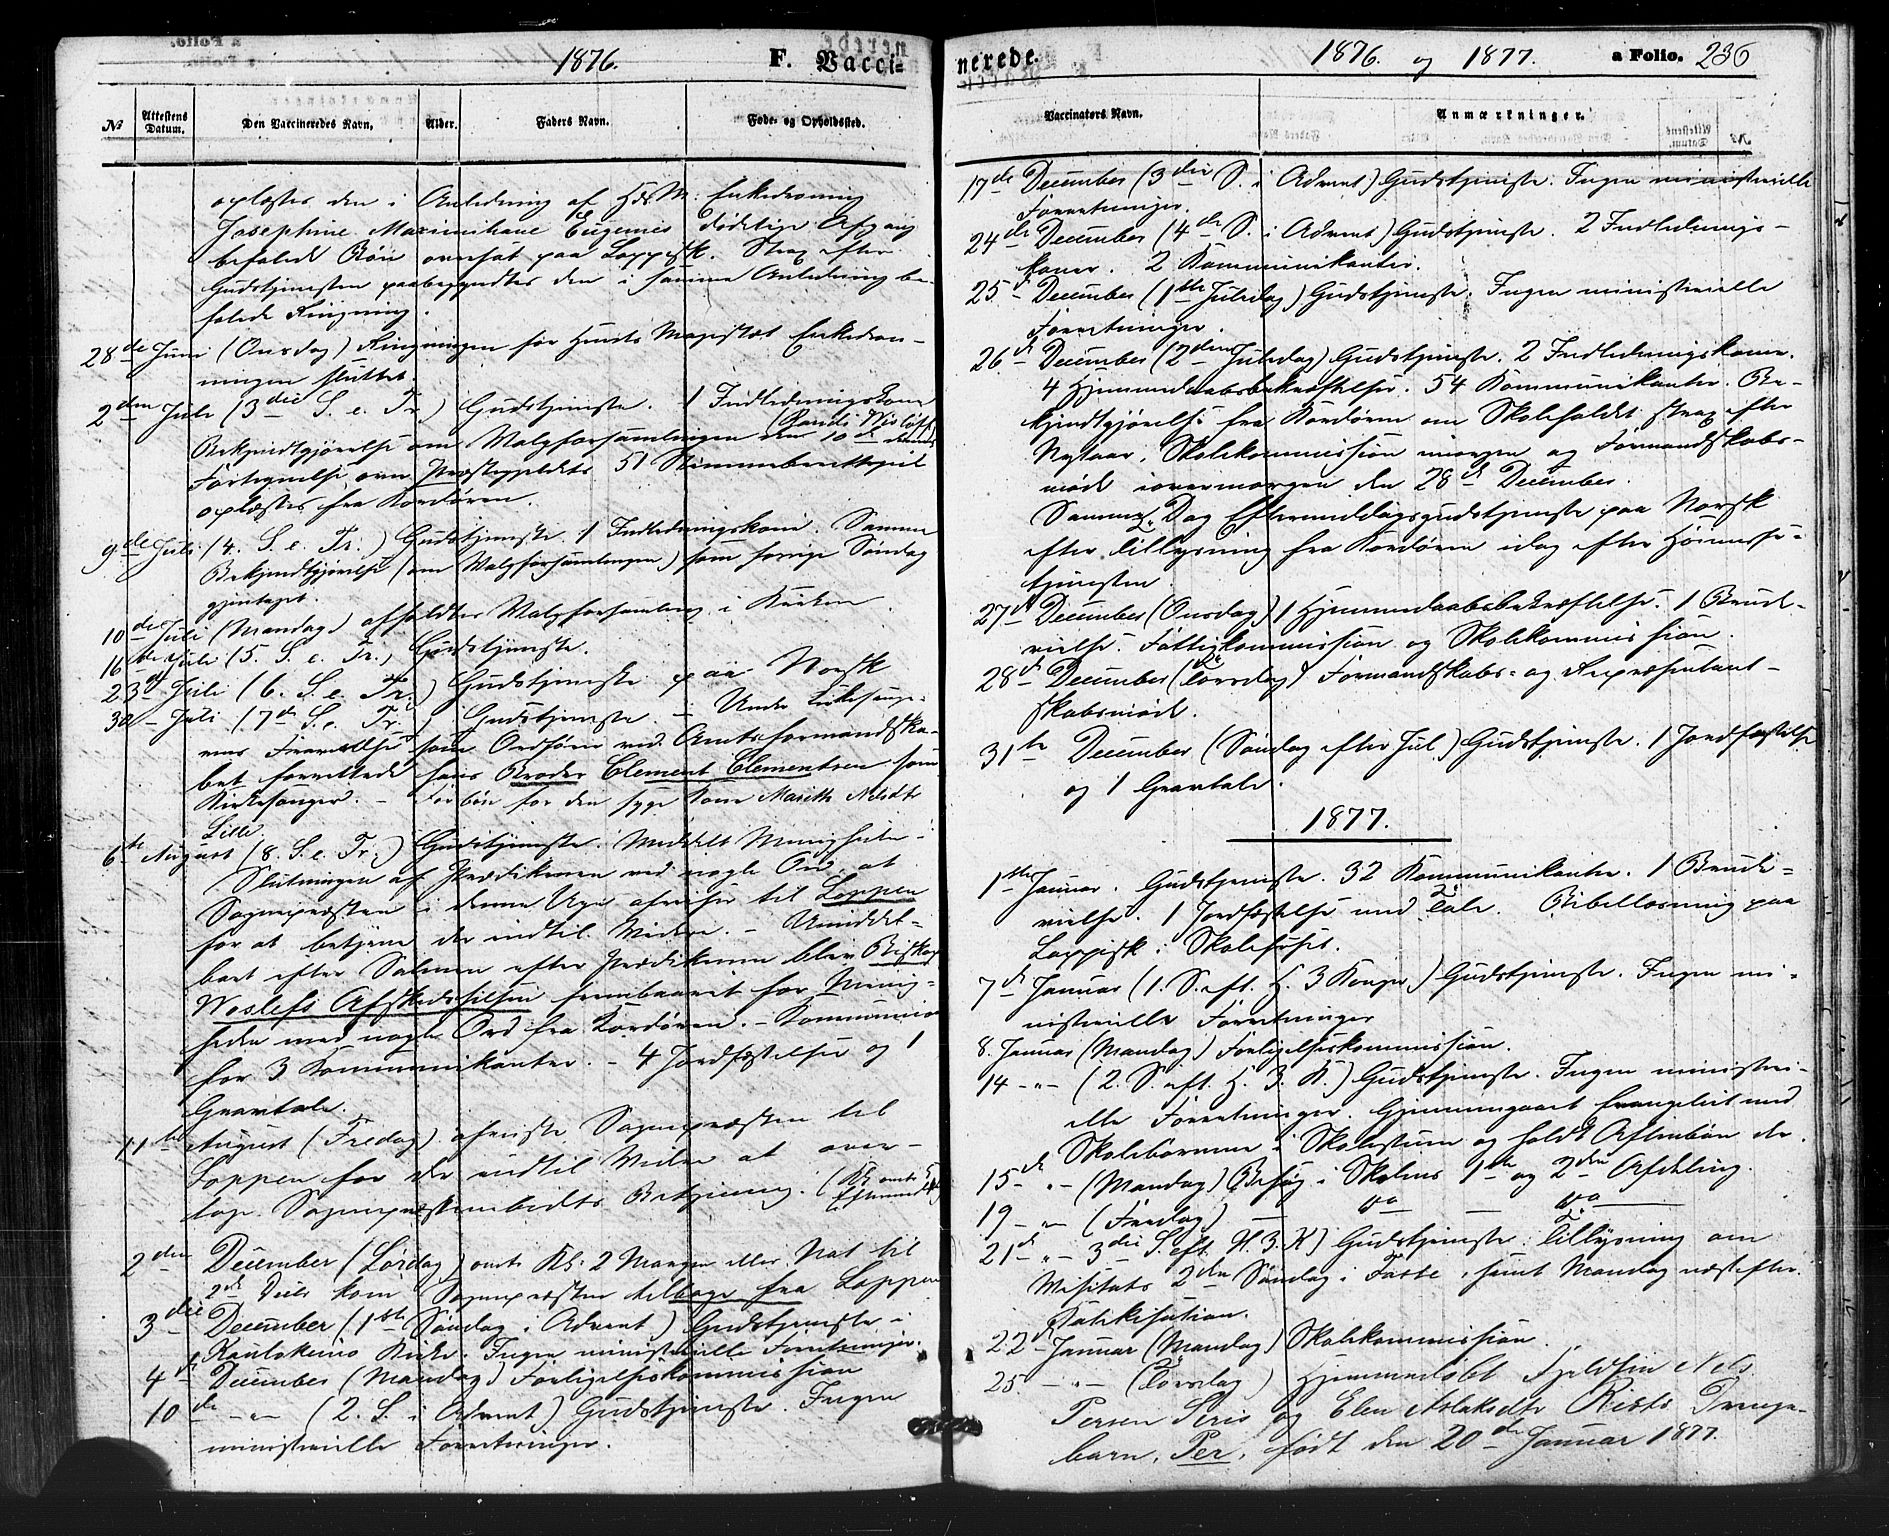 1876.
F. Vacci=
№
Attestens Datum.
Den Vaccineredes Navn,
Alder.
Faders Navn.
Føde- og Opholdssted.
oplæstes den i Anledning af Hds. M. Enkedronning
Josephine Maximiliane Eugenies dødelige Afgang
befalede Bøn oversat paa Lappisk. Strax efter
Gudstjenesten paabegyndtes den i samme Anledning be-
falede Ringning.
28de Juni (Onsdag) Ringningen for Hendes Majestæt Enkedron-
ningen sluttet.
2den Juli (3die S. e. Tr.) Gudstjeneste. 1 Indledningskone
Bekjendtgjørelse om Valgforsamlingen den 10de dennes
Fortegnelse over Præstegjeldets 51 Stemmeberettigede
oplæstes fra Kordøren.
9de Juli (4. S. e. Tr.) Gudstjeneste. 1 Indledningskone. Samme
Bekjendtgjørelse (om Valgforsamlingen) som forrige Søndag
gjentaget.
10de Juli (Mandag) afholdtes Valgforsamling i Kirken.
16de Juli (5. S. e. Tr.) Gudstjeneste.
23de Juli (6. S. e. Tr.) Gudstjeneste paa Norsk
30 - Juli (7de S. e. Tr.) Gudstjeneste. - Under Kirkesange-
rens Fraværelse som Ordfører ved Amtsformandska-
bet forrettede hans Broder Clement Clementsen som
Kirkesanger. - Forbøn for den syge Kone Marith Nilsdt.
Lille.
6te August (8. S. e. Tr.) Gudstjeneste. Meddelt Menigheden i
Slutningen af Prædikenen ved nogle Ord at
Sognepræsten i denne Uge afreiser til Loppen
for at betjene der indtil Videre. - Umiddel-
bart efter Salmen efter Prædikenen blev Biskop
Hvoslefs Afskedshilsen frembaaret for Menig-
heden med nogle Ord fra Kordøren. - Kommunion
for 3 Kommunikanter. - 4 Jordfæstelser og 1
Gravtale.
11te August (Fredag) afreiste Sognepræsten til
Loppen for der indtil Videre at over-
tage Sognepræstembedets Betjening.
2den December (Lørdag) omt. Kl. 2 Morgen eller Nat til
2den Dec. kom Sognepræsten tilbage fra Loppen
3die December (1ste Søndag i Advent) Gudstjeneste i
Kautokeino Kirke. Ingen ministerielle Forretninger.
4de December (Mandag) Forligelseskommission
10de -"- (2. S. i Advent) Gudstjeneste. Ingen
ministerielle Forretninger.
nerede.
1876. og 1877.
a Folio. 236
Vaccinators Navn.
Anmærkninger.
17de December (3die S. i Advent) Gudstjeneste. Ingen ministerielle
Forretninger.
24de December (4de S. i Advent) Gudstjeneste. 2 Indlednings-
koner. 2 Kommunikanter.
25. - December (1ste Juledag) Gudstjeneste. Ingen ministerielle
Forretninger.
26de December (2den Juledag) Gudstjeneste. 2 Indledningskoner.
4 Hjemmedaabsbekræftelser. 54 Kommunikanter. Be-
kjendtgjørelse fra Kordøren om Skoleholdet strax efter
Nytaar, Skolekommission imorgen og Formandskabs-
møde iovermorgen den 28de December.
Samme Dag Eftermiddagsgudstjeneste paa Norsk
efter Tillysning fra Kordøren idag efter Høimesse-
tjenesten.
27de December (Onsdag) 1 Hjemmedaabsbekræftelse. 1 Brude-
vielse. Fattigkommission og Skolekommission.
28de December (Torsdag) Formandskabs- og Repræsentant-
skabsmøde.
31te December (Søndag efter Jul.) Gudstjeneste. 1 Jordfæstelse
og 1 Gravtale.
1877.
1ste Januar. Gudstjeneste. 32 Kommunikanter. 1 Brude-
vielse. 1 Jordfæstelse med Tale. Bibellæsning paa
Lappisk i Skolehuset.
7de Januar (1. S. eft. H. 3 Konger) Gudstjeneste. Ingen mi-
nisterielle Forretninger
8. Januar (Mandag) Forligelseskommission.
14 -"- (2. S. eft. H. 3. K.) Gudstjeneste. Ingen ministeri-
elle Forretninger. Gjennemgaaet Evangeliet med
Skolebørnene i Skolestuen og holdt Aftenbøn der.
15de -"- (Mandag) Besøg i Skolens 1ste og 2den Afdeling.
19 -"- (Fredag) - do - do
21de -"- 3die S. eft. H. 3. K) Gudstjeneste. Tillysning om
Visitats 2den Søndag i Faste, samt Mandag næstefter.
Katekisation.
22de Januar (Mandag) Skolekommission.
25. -"- (Torsdag) Hjemmedøbt Fjeldfin Nels
Persen Siris og Elen Aslaksdtr Rists Drenge-
barn, Per, født den 20de Januar 1877.